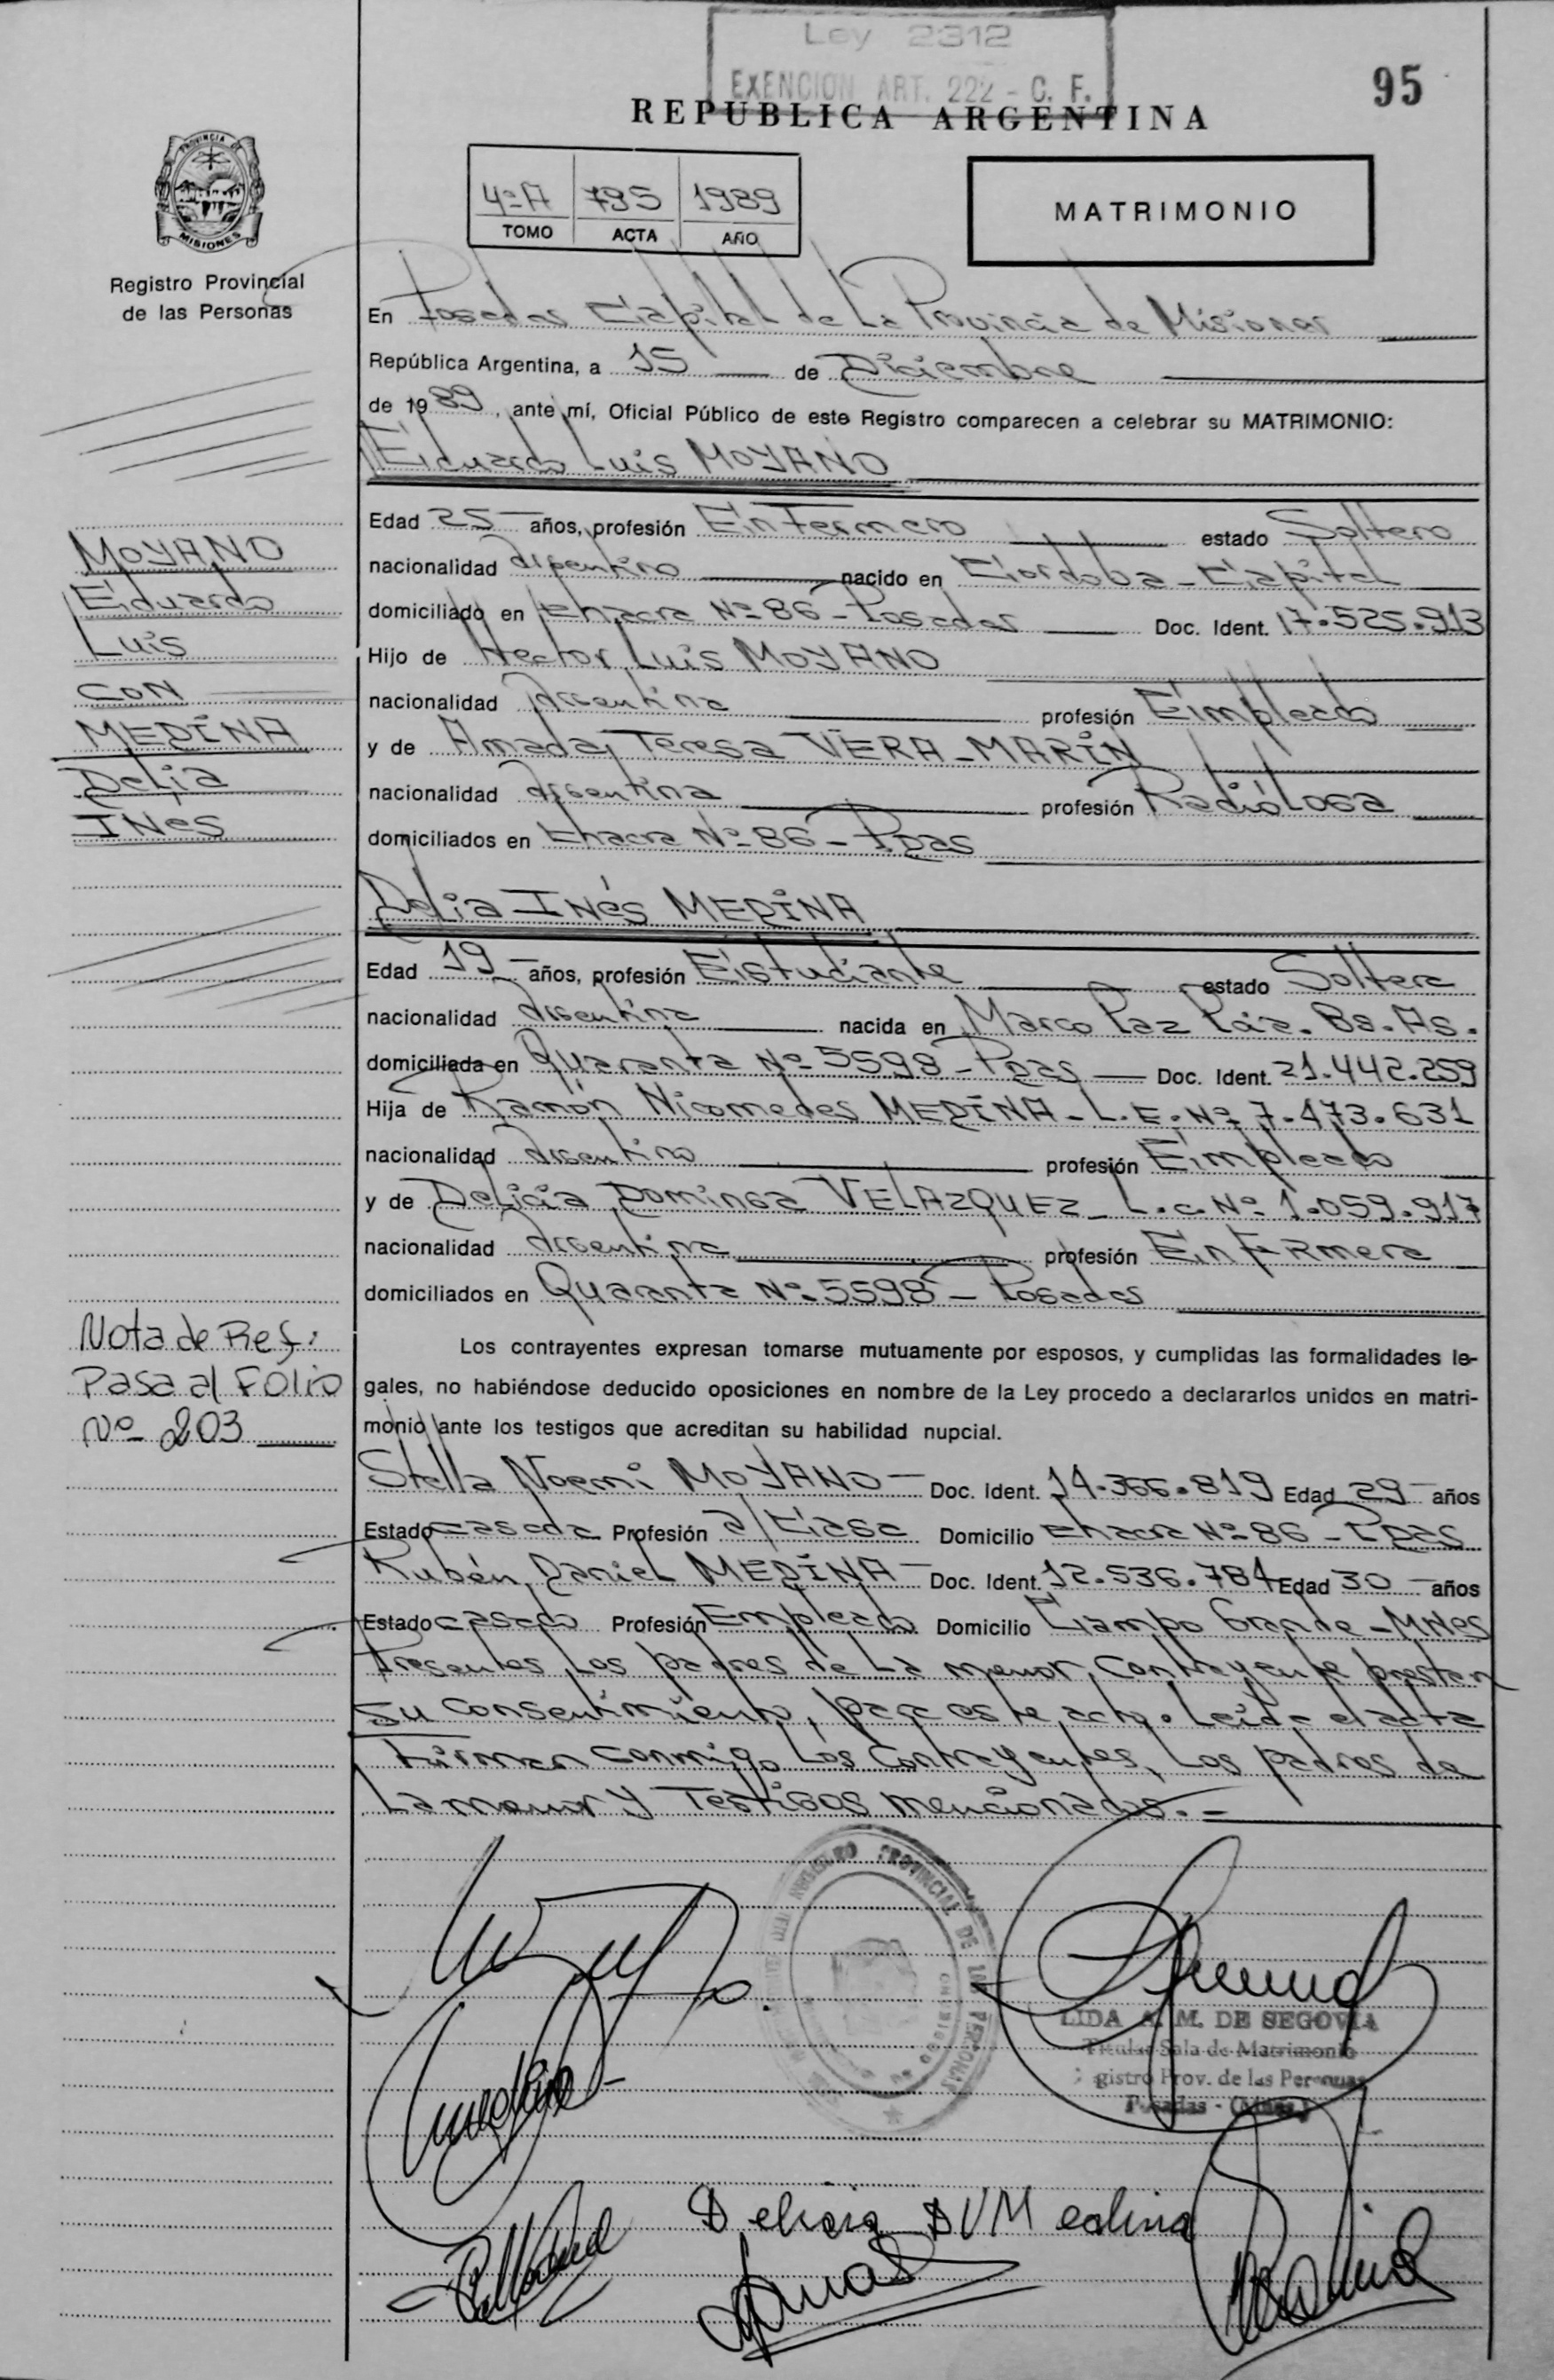 Ley 2312
EXENCION ART. 222 - C. F.
95
REPUBLICA ARGENTINA
PROVINCIA DE
MISIONES
Registro Provincial
de las Personas
4º A 795 1989
TOMO ACTA AÑO
MATRIMONIO
En Posadas Capital de La Provincia de Misiones
República Argentina, a 15 de Diciembre
de 1989, ante mí, Oficial Público de este Registro comparecen a celebrar su MATRIMONIO:
Eduardo Luis MOYANO
Edad 25 años, profesión Enfermero estado Soltero
nacionalidad Argentino nacido en Córdoba - Capital
domiciliado en Chacra Nº 86 - Posadas Doc. Ident. 17.525.913
Hijo de Hector Luis MOYANO
nacionalidad Argentina profesión Empleado
y de Amada Teresa VERA-MARÍN
nacionalidad Argentina profesión Radióloga
domiciliados en Chacra Nº 86 - Pdas
Delia Inés MEDINA
Edad 19 años, profesión Estudiante estado Soltera
nacionalidad Argentina nacida en Marco Paz Pcia. Bs. As.
domiciliada en Quaranta Nº 5598 - Pdas Doc. Ident. 21.442.259
Hija de Ramón Nicomedes MEDINA - L.E. Nº 7.473.631
nacionalidad Argentino profesión Empleado
y de Delicia Dominga VELAZQUEZ - L.C. Nº 1.059.917
nacionalidad Argentina profesión Enfermera
domiciliados en Quaranta Nº 5598 - Posadas
MOYANO
Eduardo
Luis
CON
MEDINA
Delia
INes
Nota de Ref:
Pasa al Folio
Nº 203
Los contrayentes expresan tomarse mutuamente por esposos, y cumplidas las formalidades le-
gales, no habiéndose deducido oposiciones en nombre de la Ley procedo a declararlos unidos en matri-
monio ante los testigos que acreditan su habilidad nupcial.
Stella Noemi MOYANO Doc. Ident. 14.366.819 Edad 29 años
Estado casada Profesión a/Casa Domicilio Chacra Nº 86 - Pdas
Rubén Daniel MEDINA Doc. Ident. 12.536.784 Edad 30 años
Estado casado Profesión Empleado Domicilio Campo Grande - MNes
Presentes los padres de La menor contrayente prestan
su consentimiento, para este acto. Leída el acta
Firman conmigo Los Contrayentes, Los padres de
La menor y Testigos mencionados. -
REGISTRO PROVINCIAL DE LAS PERSONAS
LIDA A. M. DE SEGOVIA
Titular Sala de Matrimonio
gistro Prov. de las Personas
Posadas - (Mnes.)
Delicia D V M edina